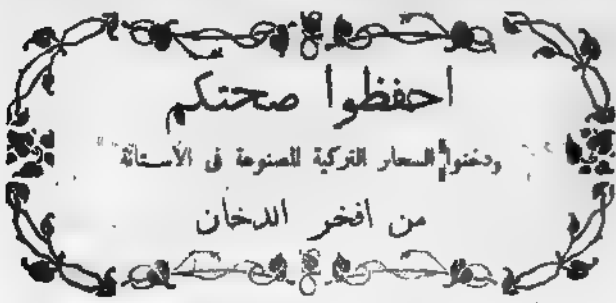 احفظوا صحتكم
ودخنوا السجار التركية المصنوعة في الأستانة
من افخر الدخان